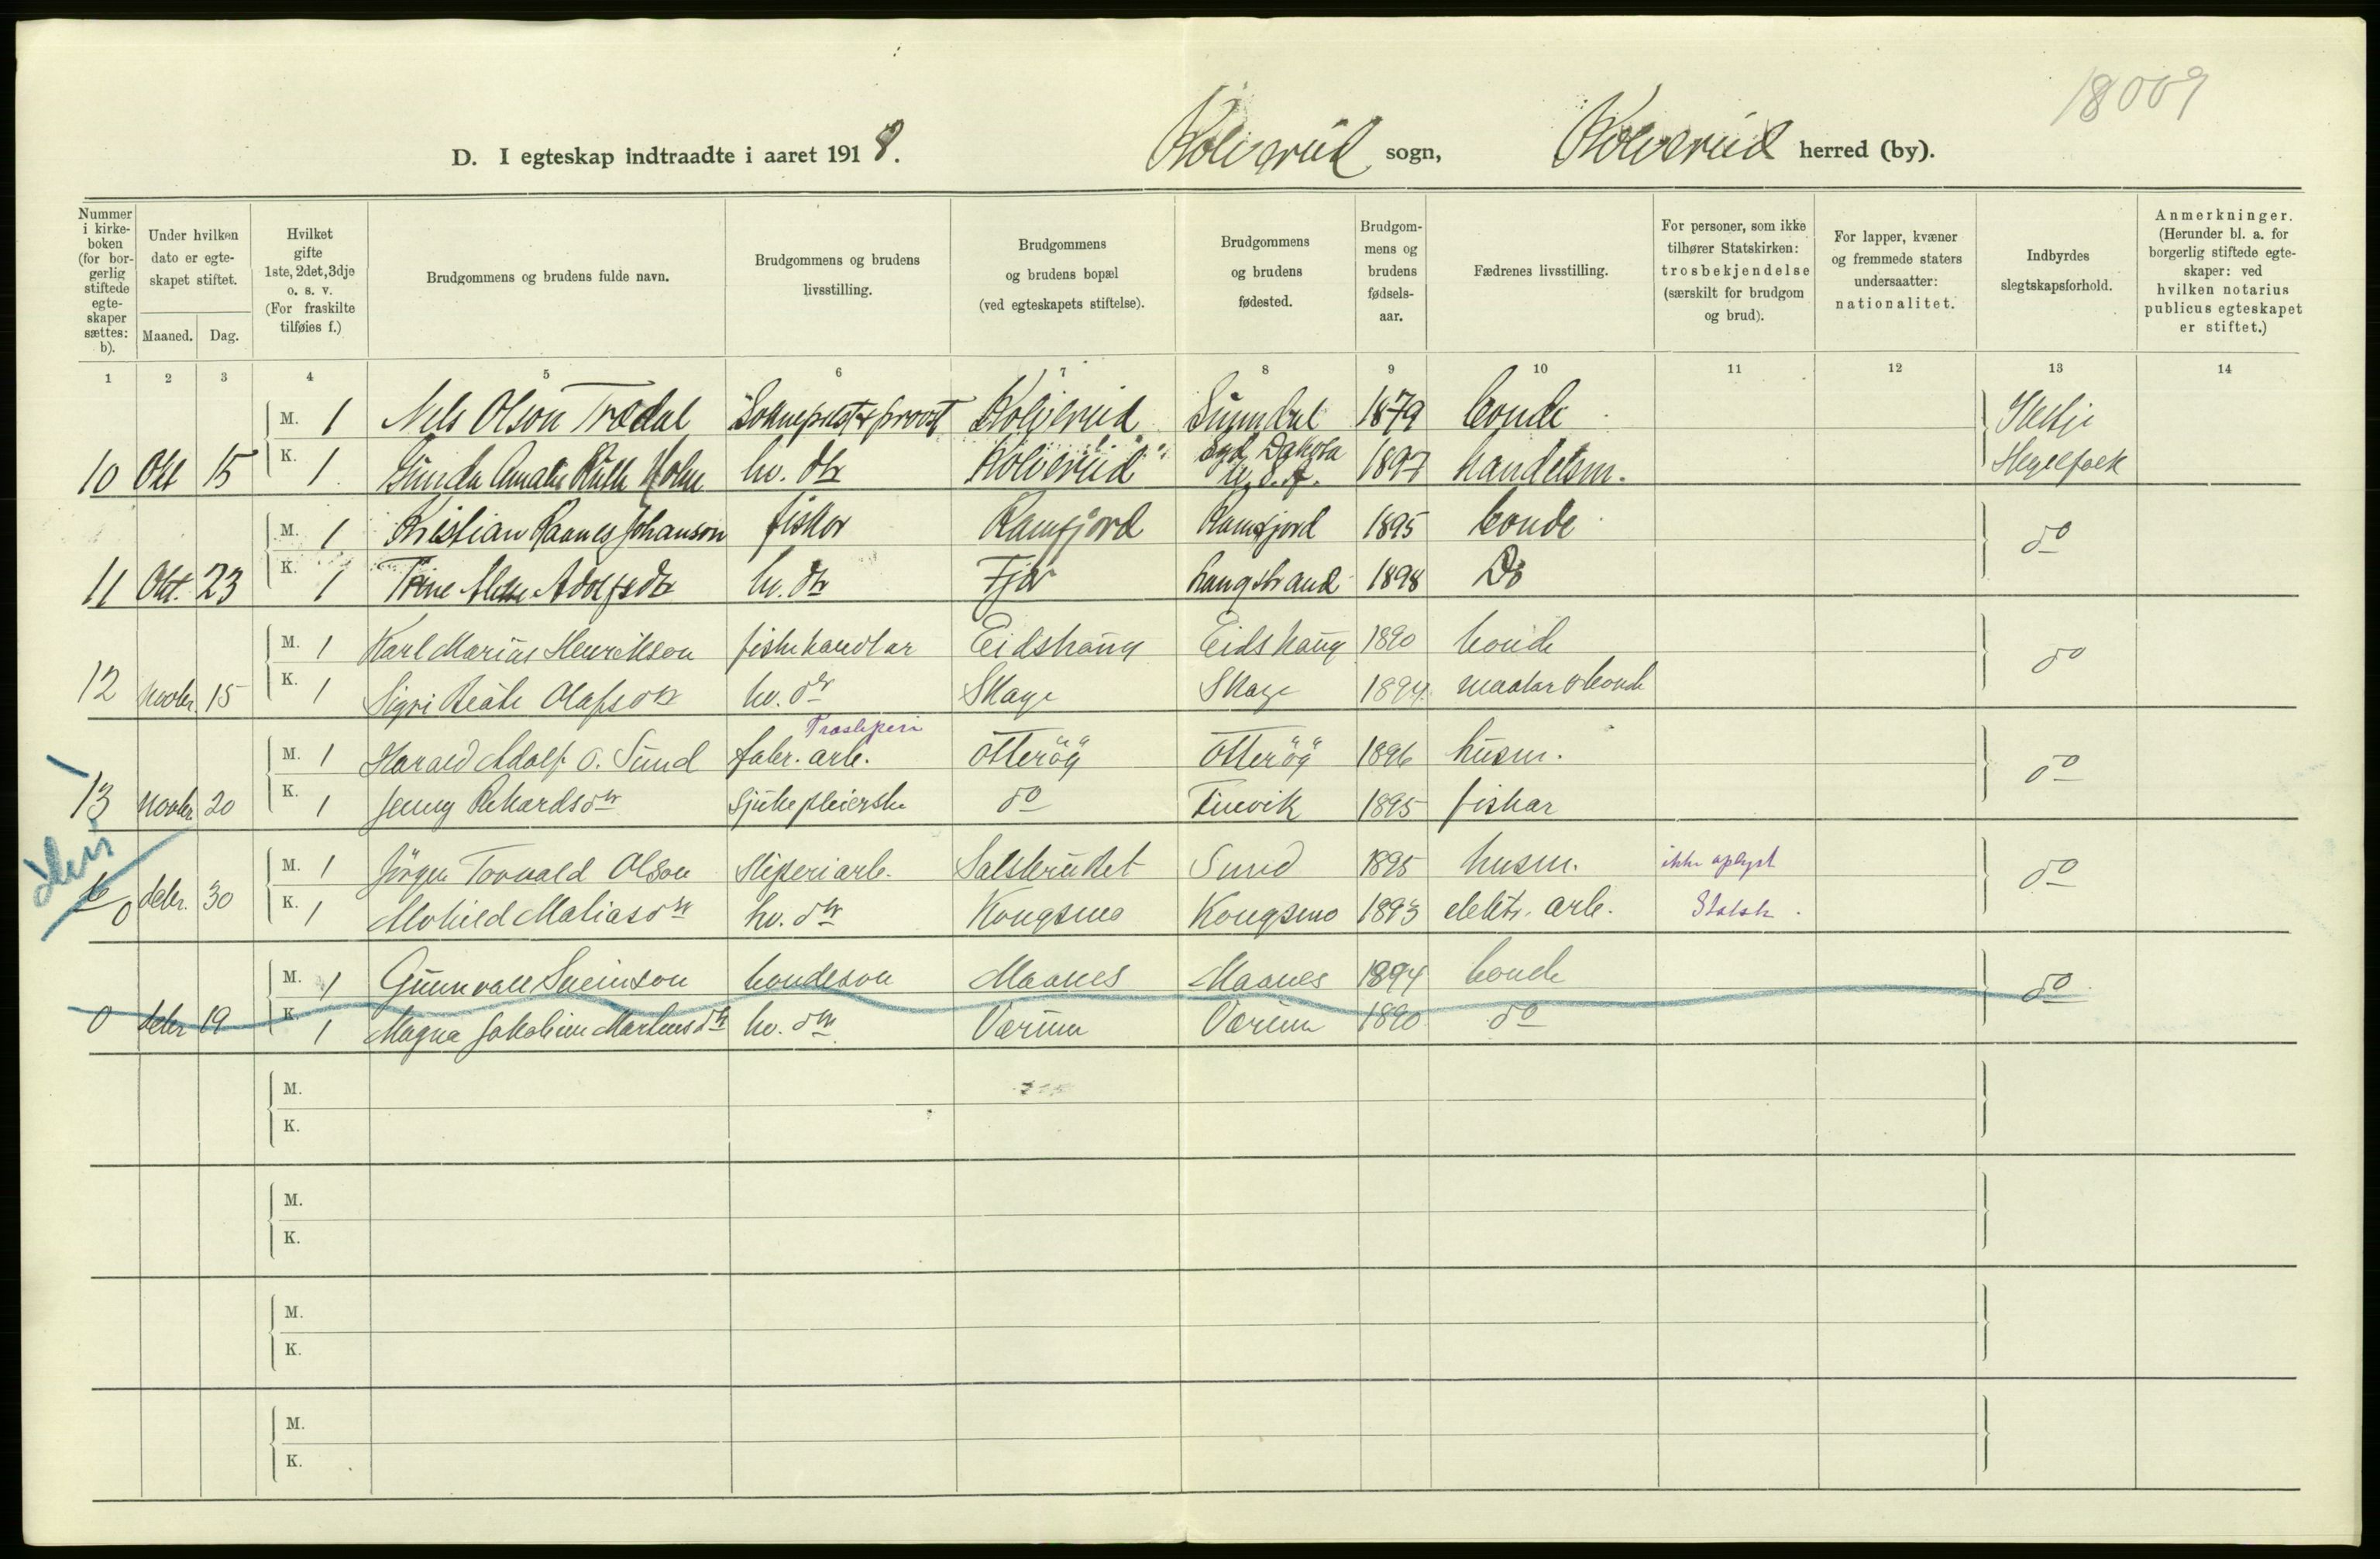 18009
D. I egteskap indtraadte i aaret 1918. Kolvereid sogn, Kolvereid herred (by).
Nummer i kirke-boken (for bor-gerlig stiftede egte-skaper sættes: b).
Under hvilken dato er egte-skapet stiftet.
Maaned. Dag.
Hvilket gifte 1ste, 2det, 3dje o. s. v. (For fraskilte tilføies f.)
Brudgommens og brudens fulde navn.
Brudgommens og brudens livsstilling.
Brudgommens og brudens bopæl (ved egteskapets stiftelse).
Brudgommens og brudens fødested.
Brudgom-mens og brudens fødsels-aar.
Fædrenes livsstilling.
For personer, som ikke tilhører Statskirken: trosbekjendelse (særskilt for brudgom og brud).
For lapper, kvæner og fremmede staters undersaatter: nationalitet.
Indbyrdes slegtskapsforhold.
Anmerkninger. (Herunder bl. a. for borgerlig stiftede egte-skaper: ved hvilken notarius publicus egteskapet er stiftet.)
1 2 3 4 5 6 7 8 9 10 11 12 13 14
M. 1 Nels Olson Trædal Sokneprest & provst Kolvereid Sunndal 1879 bonde
10 Okt 15 K. 1 Amalie Ruth Holm hv. dtr Kolvereid Syd Dakota U. S. A. 1897 handelsm.
M. 1 Kristian Johanson fiskar Ramfjord Ramfjord 1895 bonde do
11 Okt. 23 K. 1 Trine Adolfsdtr hv. dtr Langstrand 1898 Do
M. 1 Karl Marius Henrikson fiskehandlar Eidshaug Eidshaug 1890 bonde do
12 novbr 15 K. 1 Sigri Beate Olafsdtr hv. dtr Skage Skage 1894 maalar & bonde
M. 1 Harald Adolf O. Sund fabr. arb. Otterøy Otterøy 1896 husm. do
13 novbr 20 K. 1 Jenny Rikardsdtr sjukepleierske do Finvik 1895 fiskar
M. 1 Jörgen Torvald Olson sliperiarb. Salsbruket Sund 1895 husm. ikke oplyst do
0 debr. 30 K. 1 Maliasdtr hv. dtr Kongsmo Kongsmo 1893 elektr. arb. Statsk.
M. 1 Gunnvall Sveinson bondeson Maanes Maanes 1894 bonde do
0 debr 19 K. 1 Magna Jakobine Martensdtr hv. dtr Værum Værum 1890 do
M.
K.
M.
K.
M.
K.
M.
K.